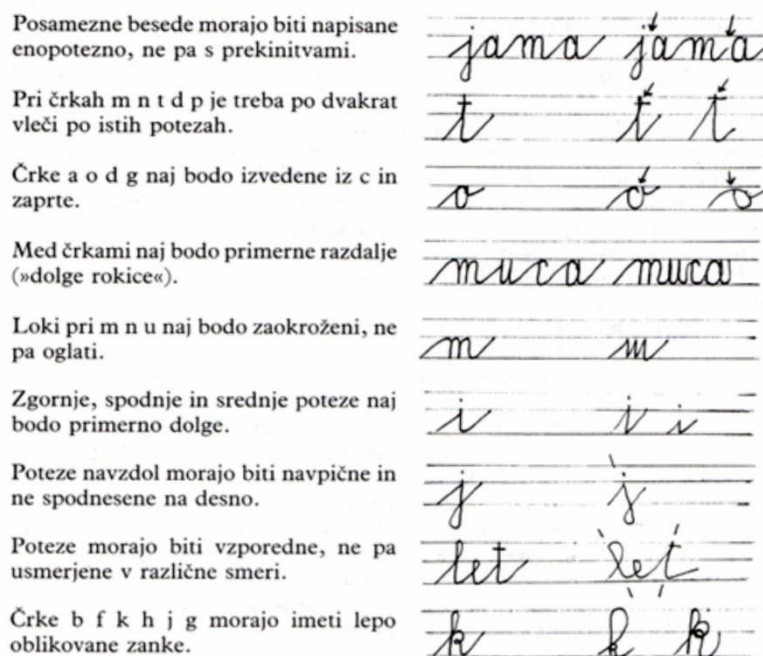 Posamezne besede morajo biti napisane
enopotezno, ne pa s prekinitvami.
jama jama
Pri črkah m n t d p je treba po dvakrat
vleči po istih potezah.
t t t
Črke a o d g naj bodo izvedene iz c in
zaprte.
o o o
Med črkami naj bodo primerne razdalje
(»dolge rokice«).
muca muca
Loki pri m n u naj bodo zaokroženi, ne
pa oglati.
m m
Zgornje, spodnje in srednje poteze naj
bodo primerno dolge.
i i i
Poteze navzdol morajo biti navpične in
ne spodnesene na desno.
j j
Poteze morajo biti vzporedne, ne pa
usmerjene v različne smeri.
let let
Črke b f k h j g morajo imeti lepo
oblikovane zanke.
k k k